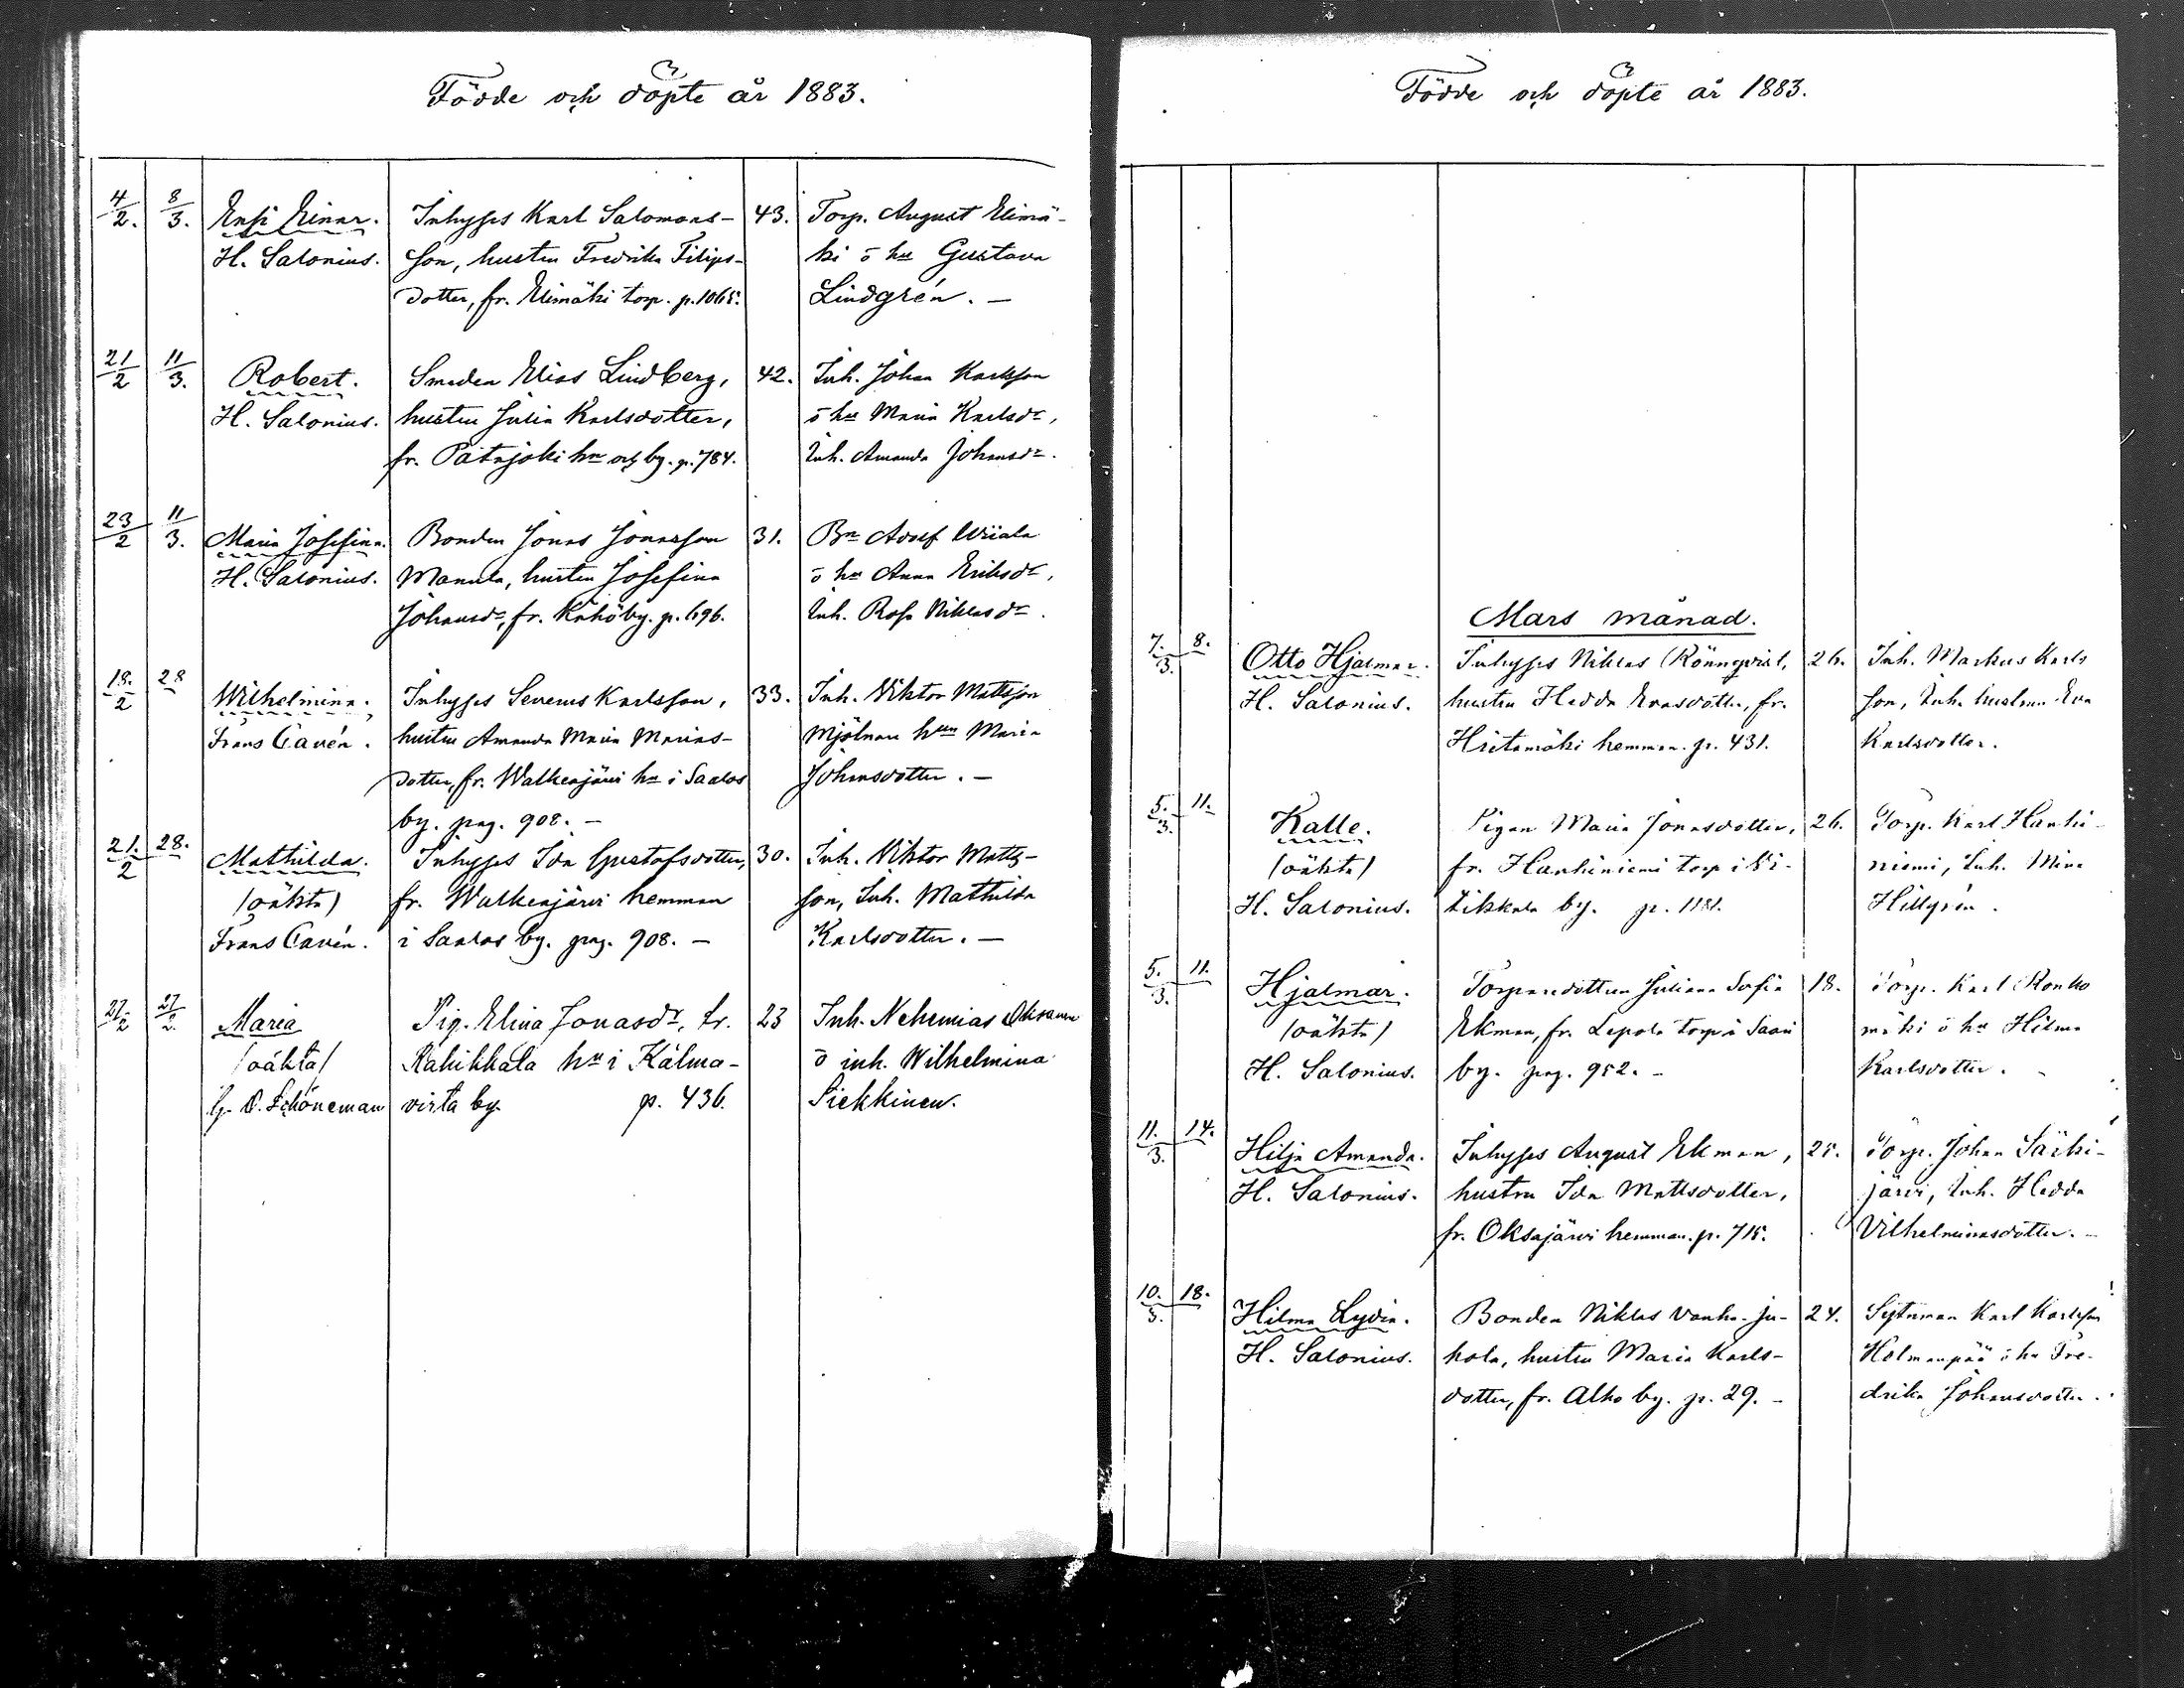 Födde och döpte år 1883.
4/2. 8/3. Ensi Einar. Inhyses Karl Salomons- 43. Torp. August Elimä-
H. Salonius. son, hustru Fredrika Filips- ki o hu Gustava
dotter, fr. Elimäki torp. p. 1065. Lindgrén. —
21/2 11/3. Robert. Smeden Elias Lindberg, 42. Inh. Johan Karlsson
H. Salonius. hustru Julia Karlsdotter, o hu Maria Karlsdr,
fr. Patajoki hn och by. p. 784. Inh. Amanda Johansdr.
23/2 11/3. Maria Josefina. Bonden Jonas Jonasson 31. Bn Adolf Uriala
H. Salonius. Mannila, hustru Josefina o hu Anna Eriksdr,
Johansdr, fr. by. p. 696. Inh. Rosa Niklasdr.
18./2 28 Wilhelmina. Inhyses Severus Karlsson, 33. Inh. Viktor Mattsson
Frans Cavén. hustru Amanda Maria Marias- Mjölnare hun Maria
dotter, fr. Walkeajärvi hn i Saalos Johansdotter. —
by. pag. 908. —
21./2 28. Mathilda. Inhyses Ida Gustafsdotter, 30. Inh. Viktor Matts-
(oäkta) fr. Walkeajärvi hemman son, Inh. Mathilda
Frans Cavén. i Saalos by. pag. 908. — Karlsdotter. —
27/2 27/2. Maria Pig. Elina Jonasdr, fr. 23 Inh. Nehemias Oksanen
/oäkta/ Rahikkala hn i Kälma- o inh. Wilhelmina
G. O. Schöneman virta by. p. 436. Siekkinen.
Födde och döpte år 1883.
Mars månad.
7./3. 8. Otto Hjalmar. Inhyses Niklas Rönnqvist, 26. Inh. Markus Karls
H. Salonius. hustru Hedda Evasdotter, fr. son, Inh. hustrun Eva
Hietamäki hemman. p. 431. Karlsdotter.
5./3. 11. Kalle. Pigan Maria Jonasdotter, 26. Torp. Karl Hanhi-
(oäkta) fr. Hanhiniemi torp i Vi- niemi, Inh. Mina
H. Salonius. tikkala by. p. 1181. Hillgrén.
5./3. 11. Hjalmar. Torparedottren Juliana Sofia 18. Torp. Karl Ronko
(oäkta) Ekman, fr. Lepola torp i Saari mäki o hu Hilma
H. Salonius. by. pag. 952. - Karlsdotter.
11./3. 14. Hilja Amanda. Inhyses August Ekman, 25. Torp. Johan Särki-
H. Salonius. hustru Ida Mattsdotter, järvi, Inh. Hedda
fr. Oksajärvi hemman. p. 715. Vilhelminasdotter. -
10./3. 18. Hilma Lydia. Bonden Niklas Vanha-Ju- 24. Sytnman Karl Karlsson
H. Salonius. hola, hustru Maria Karls- Holmanpää o hu Fre-
dotter, fr. Alho by. p. 29. - drika Johansdotter.